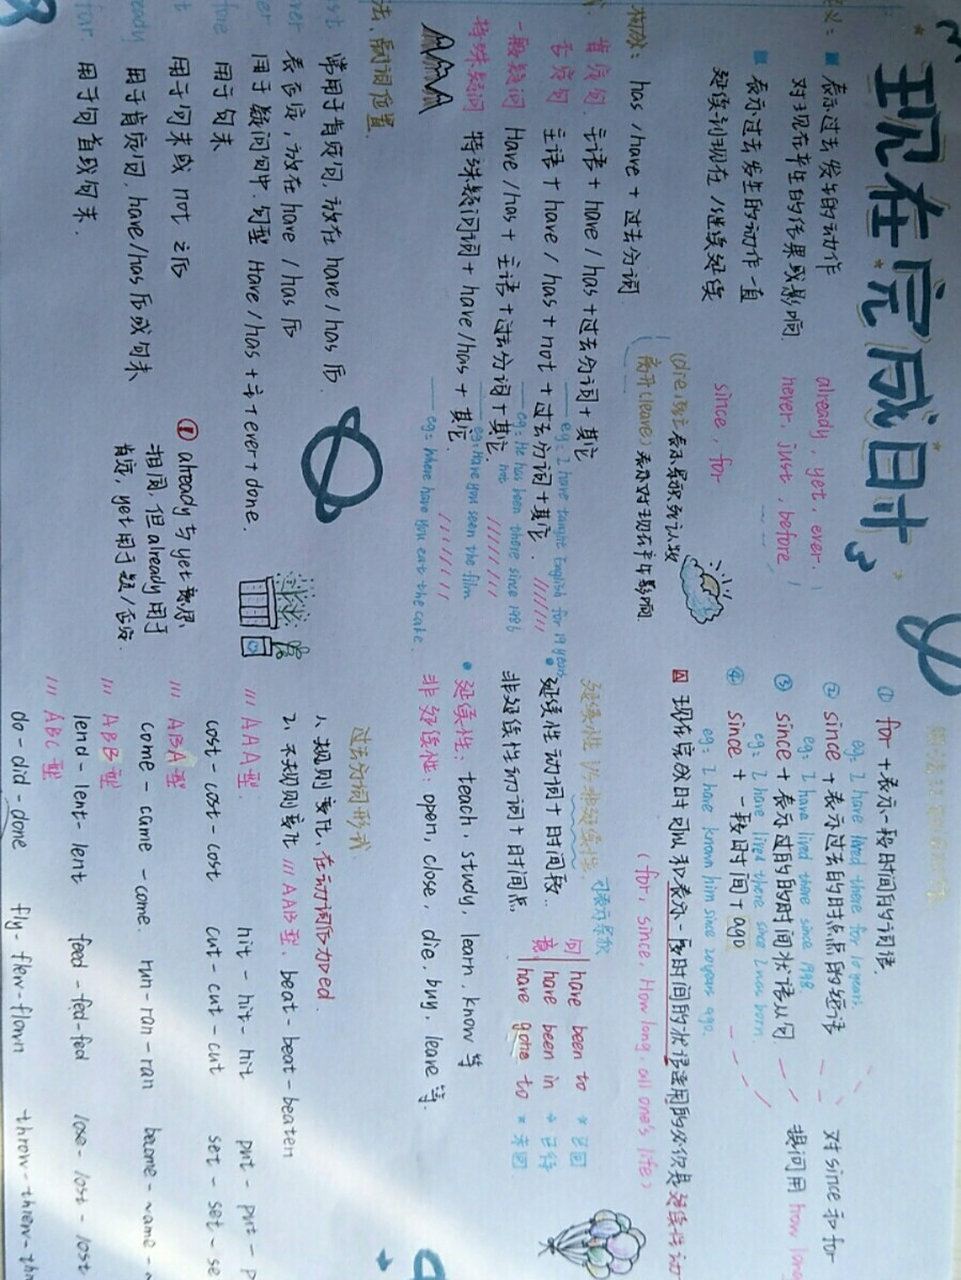 现在完成时
义:
表示过去发生的动作
对现在产生的结果或影响
表示过去发生的动作一直
延续到现在/继续延续
already, yet, ever.
never, just, before
since, for
构成: has/have + 过去分词
(die, 死) 表示
离开(leave) 表示对现在产生影响
肯定句 主语 + have/has + 过去分词 + 其它
eg: I have taught English for 19 years
否定句 主语 + have/has + not + 过去分词 + 其它
eg: He has not been there since 1986
一般疑问 Have/has + 主语 + 过去分词 + 其它
eg: Have you seen the film
特殊疑问 特殊疑问词 + have/has + 其它
eg: Where have you eat the cake.
法、副词位置
just 常用于肯定句, 放在 have/has 后.
ever 表否定, 放在 have/has 后
ever 用于疑问句中. 句型 Have/has + 主 + ever + done.
用于句末
用于句末或 not 之后
already 用于肯定句, have/has 后或句末
for 用于句首或句末.
① already 与 yet 意思
相同, 但 already 用于
肯定, yet 用于疑/否定.
① for + 表示一段时间的词语.
eg: I have lived there for 10 years.
② since + 表示过去的时点的短语
eg: I have lived there since 1998.
③ since + 表示过的的时间状语从句
eg: I have lived there since I was born.
④ since + 一段时间 + ago
eg: I have known him since 20 years ago.
对 since 和 for
提问用 how long
现在完成时可以和表示一段时间的状语连用的必须是延续性动
(for, since, How long, all one's life)
延续性 VS 非延续性.
延续性动词 + 时间段.
非延续性动词 + 时间点.
问 have been to × 已回
have been in → 已待
意 have gone to × 未回
延续性: teach, study, learn, know 等
非延续性: open, close, die, buy, leave 等.
过去分词形式
1. 规则变化, 在动词后加ed.
2. 不规则变化 /// AAB型. beat-beat-beaten
/// AAA型.
cost-cost-cost hit-hit-hit put-put-p
cut-cut-cut set-set-se
/// ABA型
come-came-come. run-ran-ran become-
/// ABB型
lend-lent-lent feed-fed-fed lose-lost-lost
/// ABC型
do-did-done fly-flew-flown throw-threw-th